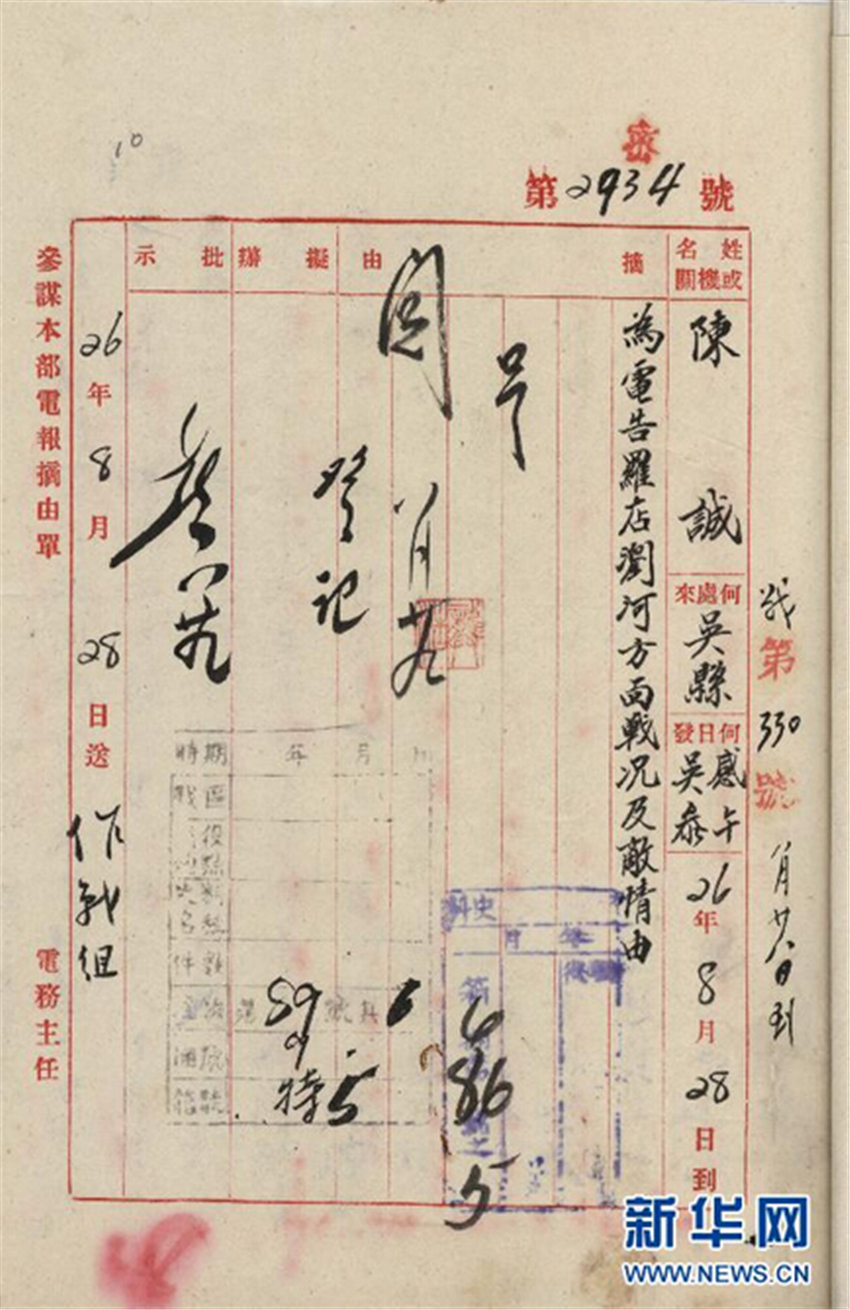 10
密
第2934號
戰第330號 八月廿八日到
姓名或機關
陳誠
何處來
吳縣
何日發
感午
吳參
26年8月28日到
摘由
為電告羅店瀏河方面戰況及敵情由
閱
八月廿九
擬辦
登記
批示
26年8月28日送 作戰組
參謀本部電報摘由單
電務主任
史料
年 月
第
6
86
5
時期 年 月 日
戰區
件數
6
59
特5
新华网
WWW.NEWS.CN